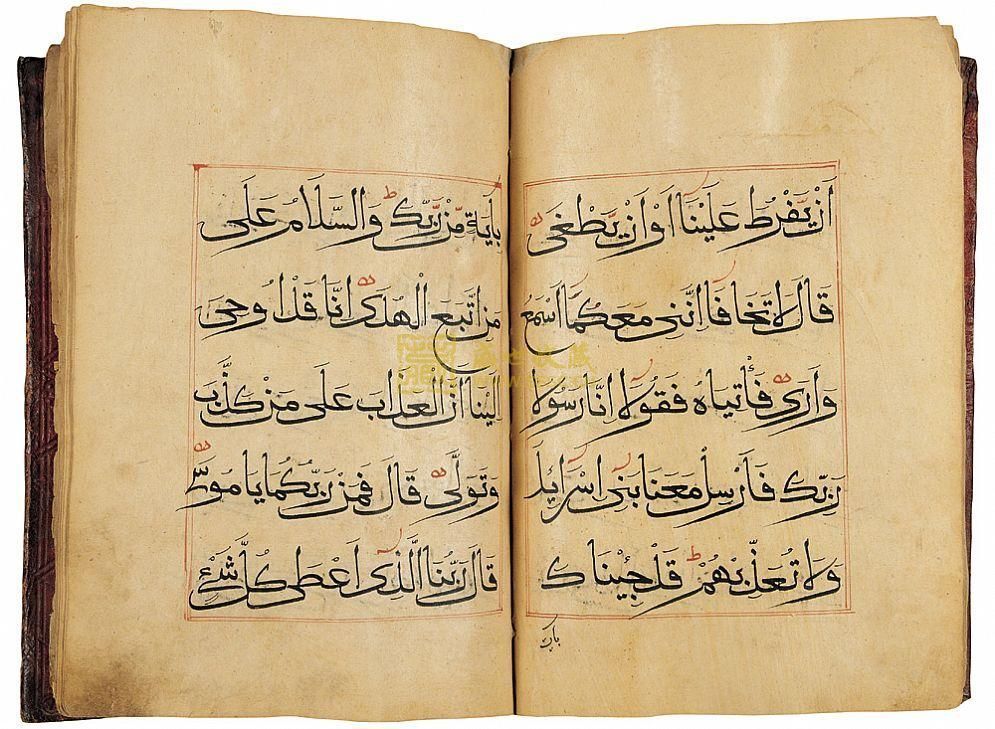 اَنْ يَّفْرُطَ عَلَيْنَا اَوْ اَنْ يَّطْغٰى
قَالَ لَا تَخَافَا اِنَّنِى مَعَكُمَا اَسْمَعُ
وَاَرٰى فَأْتِيَاهُ فَقُولَا اِنَّا رَسُولَا
رَبِّكَ فَاَرْسِلْ مَعَنَا بَنِى اِسْرَائِيلَ
وَلَا تُعَذِّبْهُمْ قَدْ جِئْنَاكَ
بِاٰيَةٍ مِّنْ رَبِّكَ وَالسَّلَامُ عَلٰى
مَنِ اتَّبَعَ الْهُدٰى اِنَّا قَدْ اُوحِىَ
اِلَيْنَا اَنَّ الْعَذَابَ عَلٰى مَنْ كَذَّبَ
وَتَوَلّٰى قَالَ فَمَنْ رَبُّكُمَا يَا مُوسٰى
قَالَ رَبُّنَا الَّذِى اَعْطٰى كُلَّ شَىْءٍ